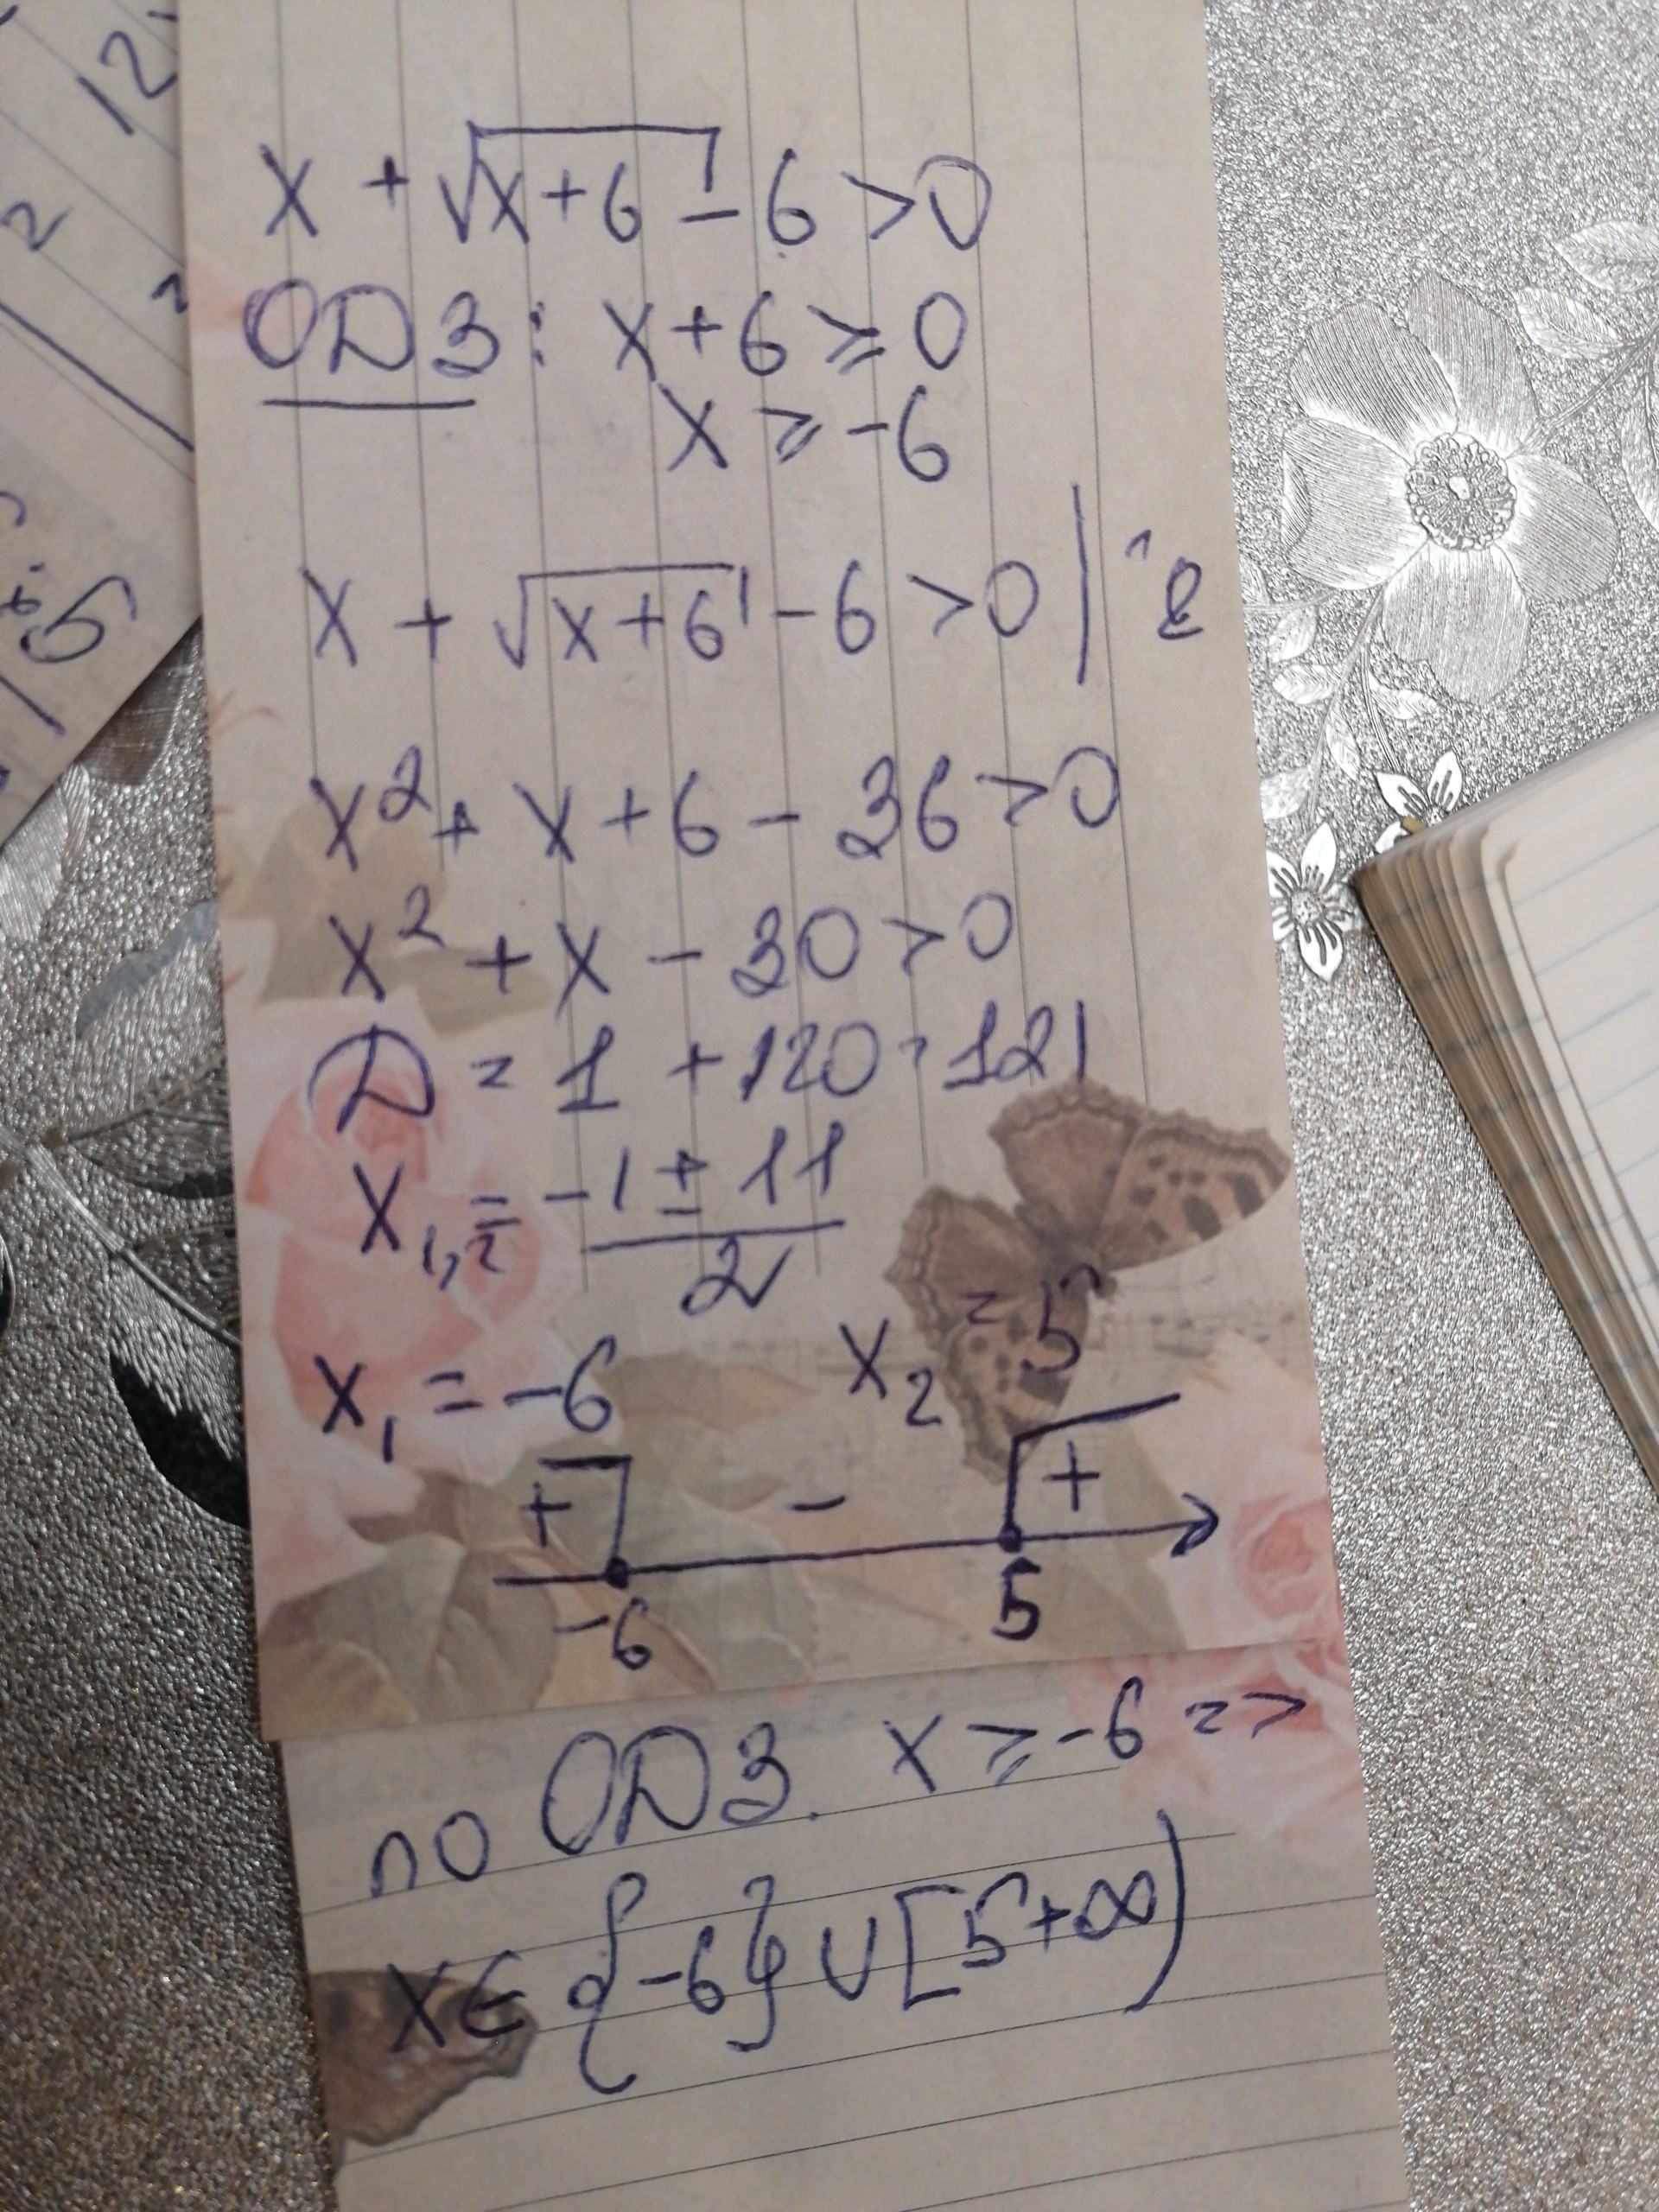 x + √x+6 - 6 > 0
ОДЗ: x + 6 ⩾ 0
x ⩾ -6
x + √x+6 - 6 > 0 | ^2
x² + x + 6 - 36 > 0
x² + x - 30 > 0
D = 1 + 120 = 121
x₁,₂ = -1 ± 11 / 2
x₁ = -6 x₂ = 5
+ - +
-6 5
по ОДЗ. x ⩾ -6 =>
x ∈ {-6} ∪ [5 +∞)
12
2
5